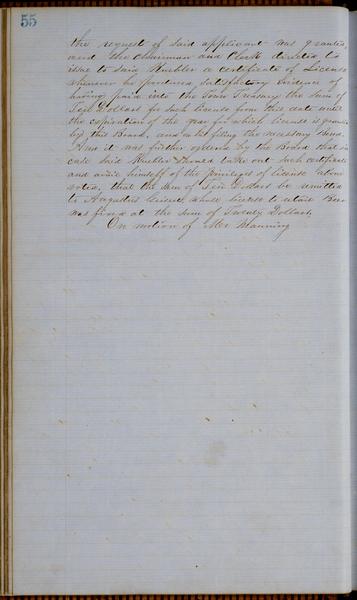 55
the request of said applicant was granted,
and the Chairman and Clerk directed to
issue to said Mueller a certificate of License
whenever he produces satisfactory evidence of
having paid into the Town Treasury the sum of
Ten Dollars for such license from this date until
the expiration of the year for which license is granted
by this Board, and on his filling the necessary Bond.
And it was further ordered by the Board that in
case said Mueller should take out such certificate
and avail himself of the privileges of license above
noted, that the sum of Ten Dollars be remitted
to Augustus whose license to retail Beer
was fixed at the sum of Twenty Dollars,
On motion of Mr Manning